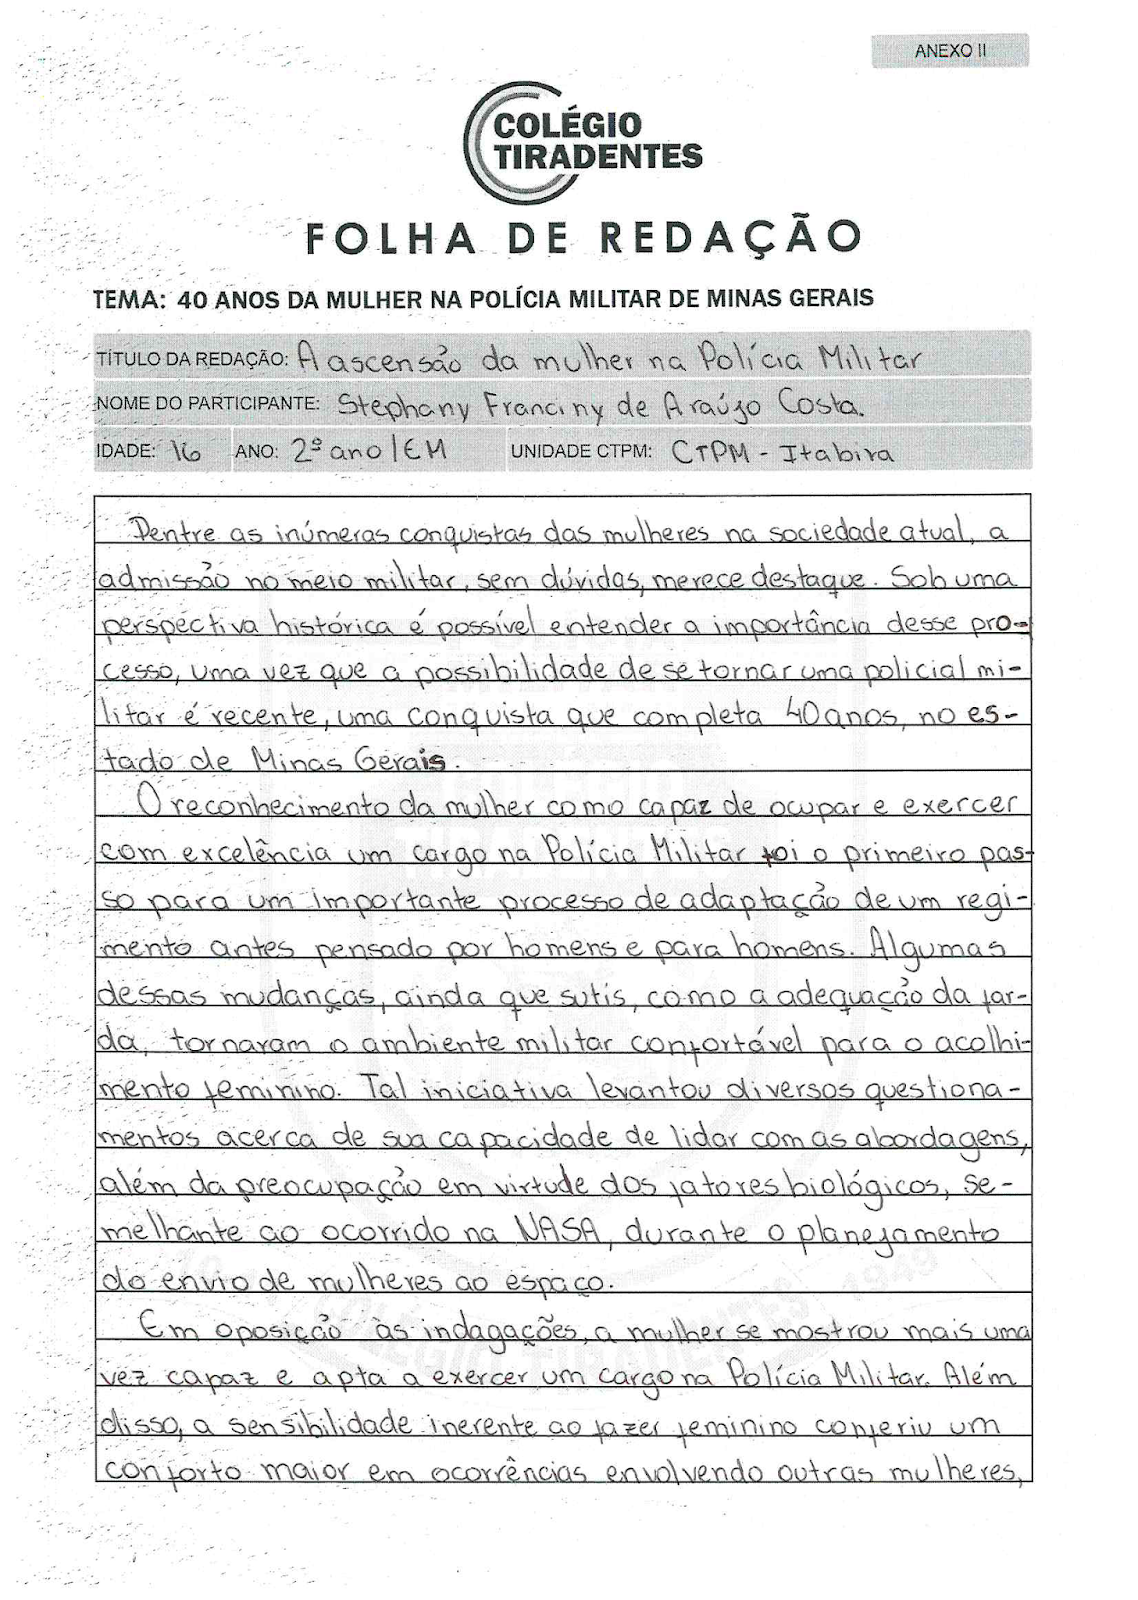 ANEXO II
COLÉGIO
TIRADENTES
FOLHA DE REDAÇÃO
TEMA: 40 ANOS DA MULHER NA POLÍCIA MILITAR DE MINAS GERAIS
TÍTULO DA REDAÇÃO: A ascensão da mulher na Polícia Militar
NOME DO PARTICIPANTE: Stephany Franciny de Araújo Costa.
IDADE: 16 ANO: 2º ano/EM UNIDADE CTPM: CTPM - Itabira
Dentre as inúmeras conquistas das mulheres na sociedade atual, a
admissão no meio militar, sem dúvidas, merece destaque. Sob uma
perspectiva histórica é possível entender a importância desse pro-
cesso, uma vez que a possibilidade de se tornar uma policial mi-
litar é recente, uma conquista que completa 40 anos, no es-
tado de Minas Gerais.
O reconhecimento da mulher como capaz de ocupar e exercer
com excelência um cargo na Polícia Militar foi o primeiro pas-
so para um importante processo de adaptação de um regi-
mento antes pensado por homens e para homens. Algumas
dessas mudanças, ainda que sutis, como a adequação da far-
da, tornaram o ambiente militar confortável para o acolhi-
mento feminino. Tal iniciativa levantou diversos questiona-
mentos acerca de sua capacidade de lidar com as abordagens,
além da preocupação em virtude dos fatores biológicos, se-
melhante ao ocorrido na NASA, durante o planejamento
do envio de mulheres ao espaço.
Em oposição às indagações, a mulher se mostrou mais uma
vez capaz e apta a exercer um cargo na Polícia Militar. Além
disso, a sensibilidade inerente ao fazer feminino conferiu um
conforto maior em ocorrências envolvendo outras mulheres,
COLÉGIO TIRADENTES 1949